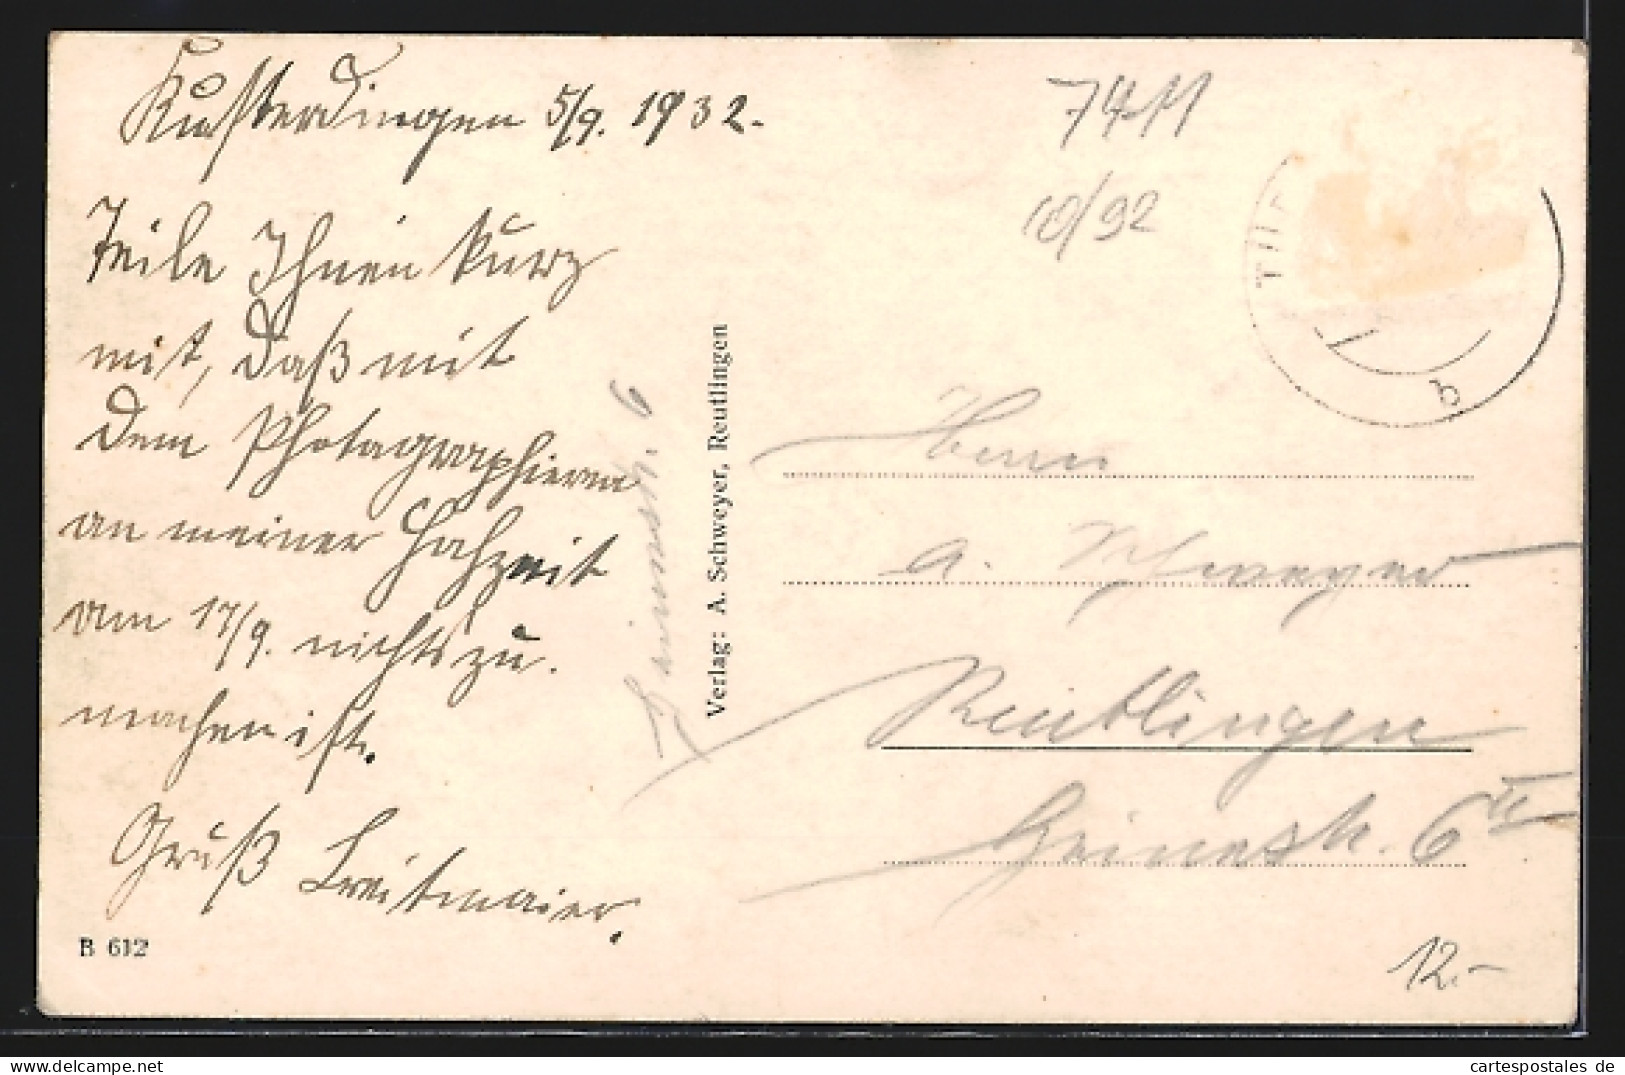 Kusterdingen 5/9. 1932.-
Teile Ihnen kurz
mit, daß mit
dem Photagraphieren
an meiner Hochzeit
am 17/9. nichts zu
machen ist.
Gruß Breitmaier.
B 612
6
Verlag: A. Schweyer, Reutlingen
7411
10/92
TÜ
b
Herrn
A. Schweyer
Reutlingen
Heinestr. 6 II
12.-
cartespostales de